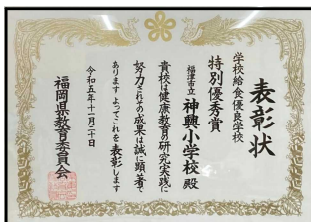 表彰状
学校給食優良学校
特別優秀賞
福津市立 神興小学校 殿
貴校は健康教育の研究実践に
努力されその成果は誠に顕著で
あります よってこれを表彰します
令和五年十一月二十日
福岡県教育委員会